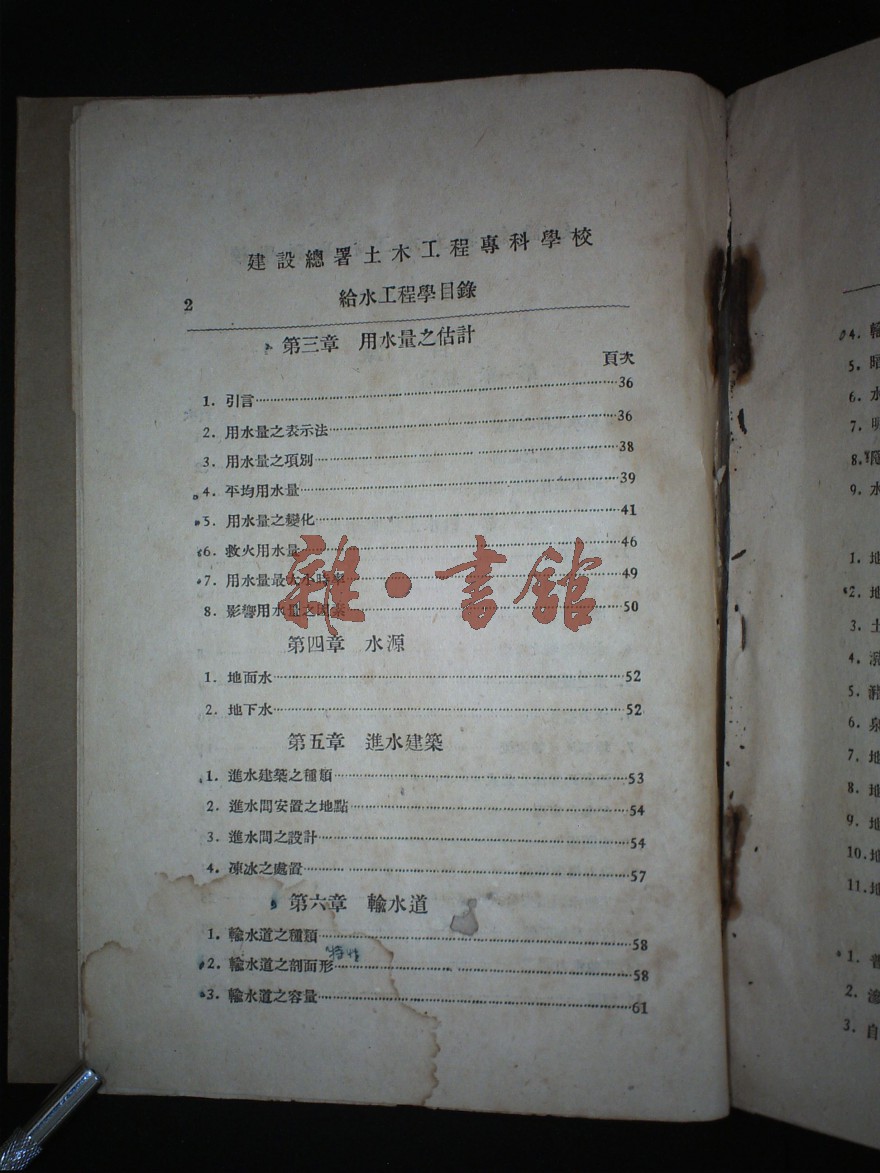 建設總署土木工程專科學校
2 給水工程學目錄
第三章 用水量之估計
頁次
1. 引言……36
2. 用水量之表示法……36
3. 用水量之項別……38
4. 平均用水量……39
5. 用水量之變化……41
6. 救火用水量……46
7. 用水量最大小時率……49
8. 影響用水量之因素……50
雜·書館
第四章 水源
1. 地面水……52
2. 地下水……52
第五章 進水建築
1. 進水建築之種類……53
2. 進水間安置之地點……54
3. 進水間之設計……54
4. 凍冰之處置……57
第六章 輸水道
1. 輸水道之種類……58
特性
2. 輸水道之剖面形……58
3. 輸水道之容量……61
4. 輸
5. 暗
6. 水
7.
8.
9. 水
1. 地
2. 地
3. 土
4.
5.
6. 泉
7. 地
8. 地
9. 地
10. 地
11. 地
1. 普
2.
3. 自